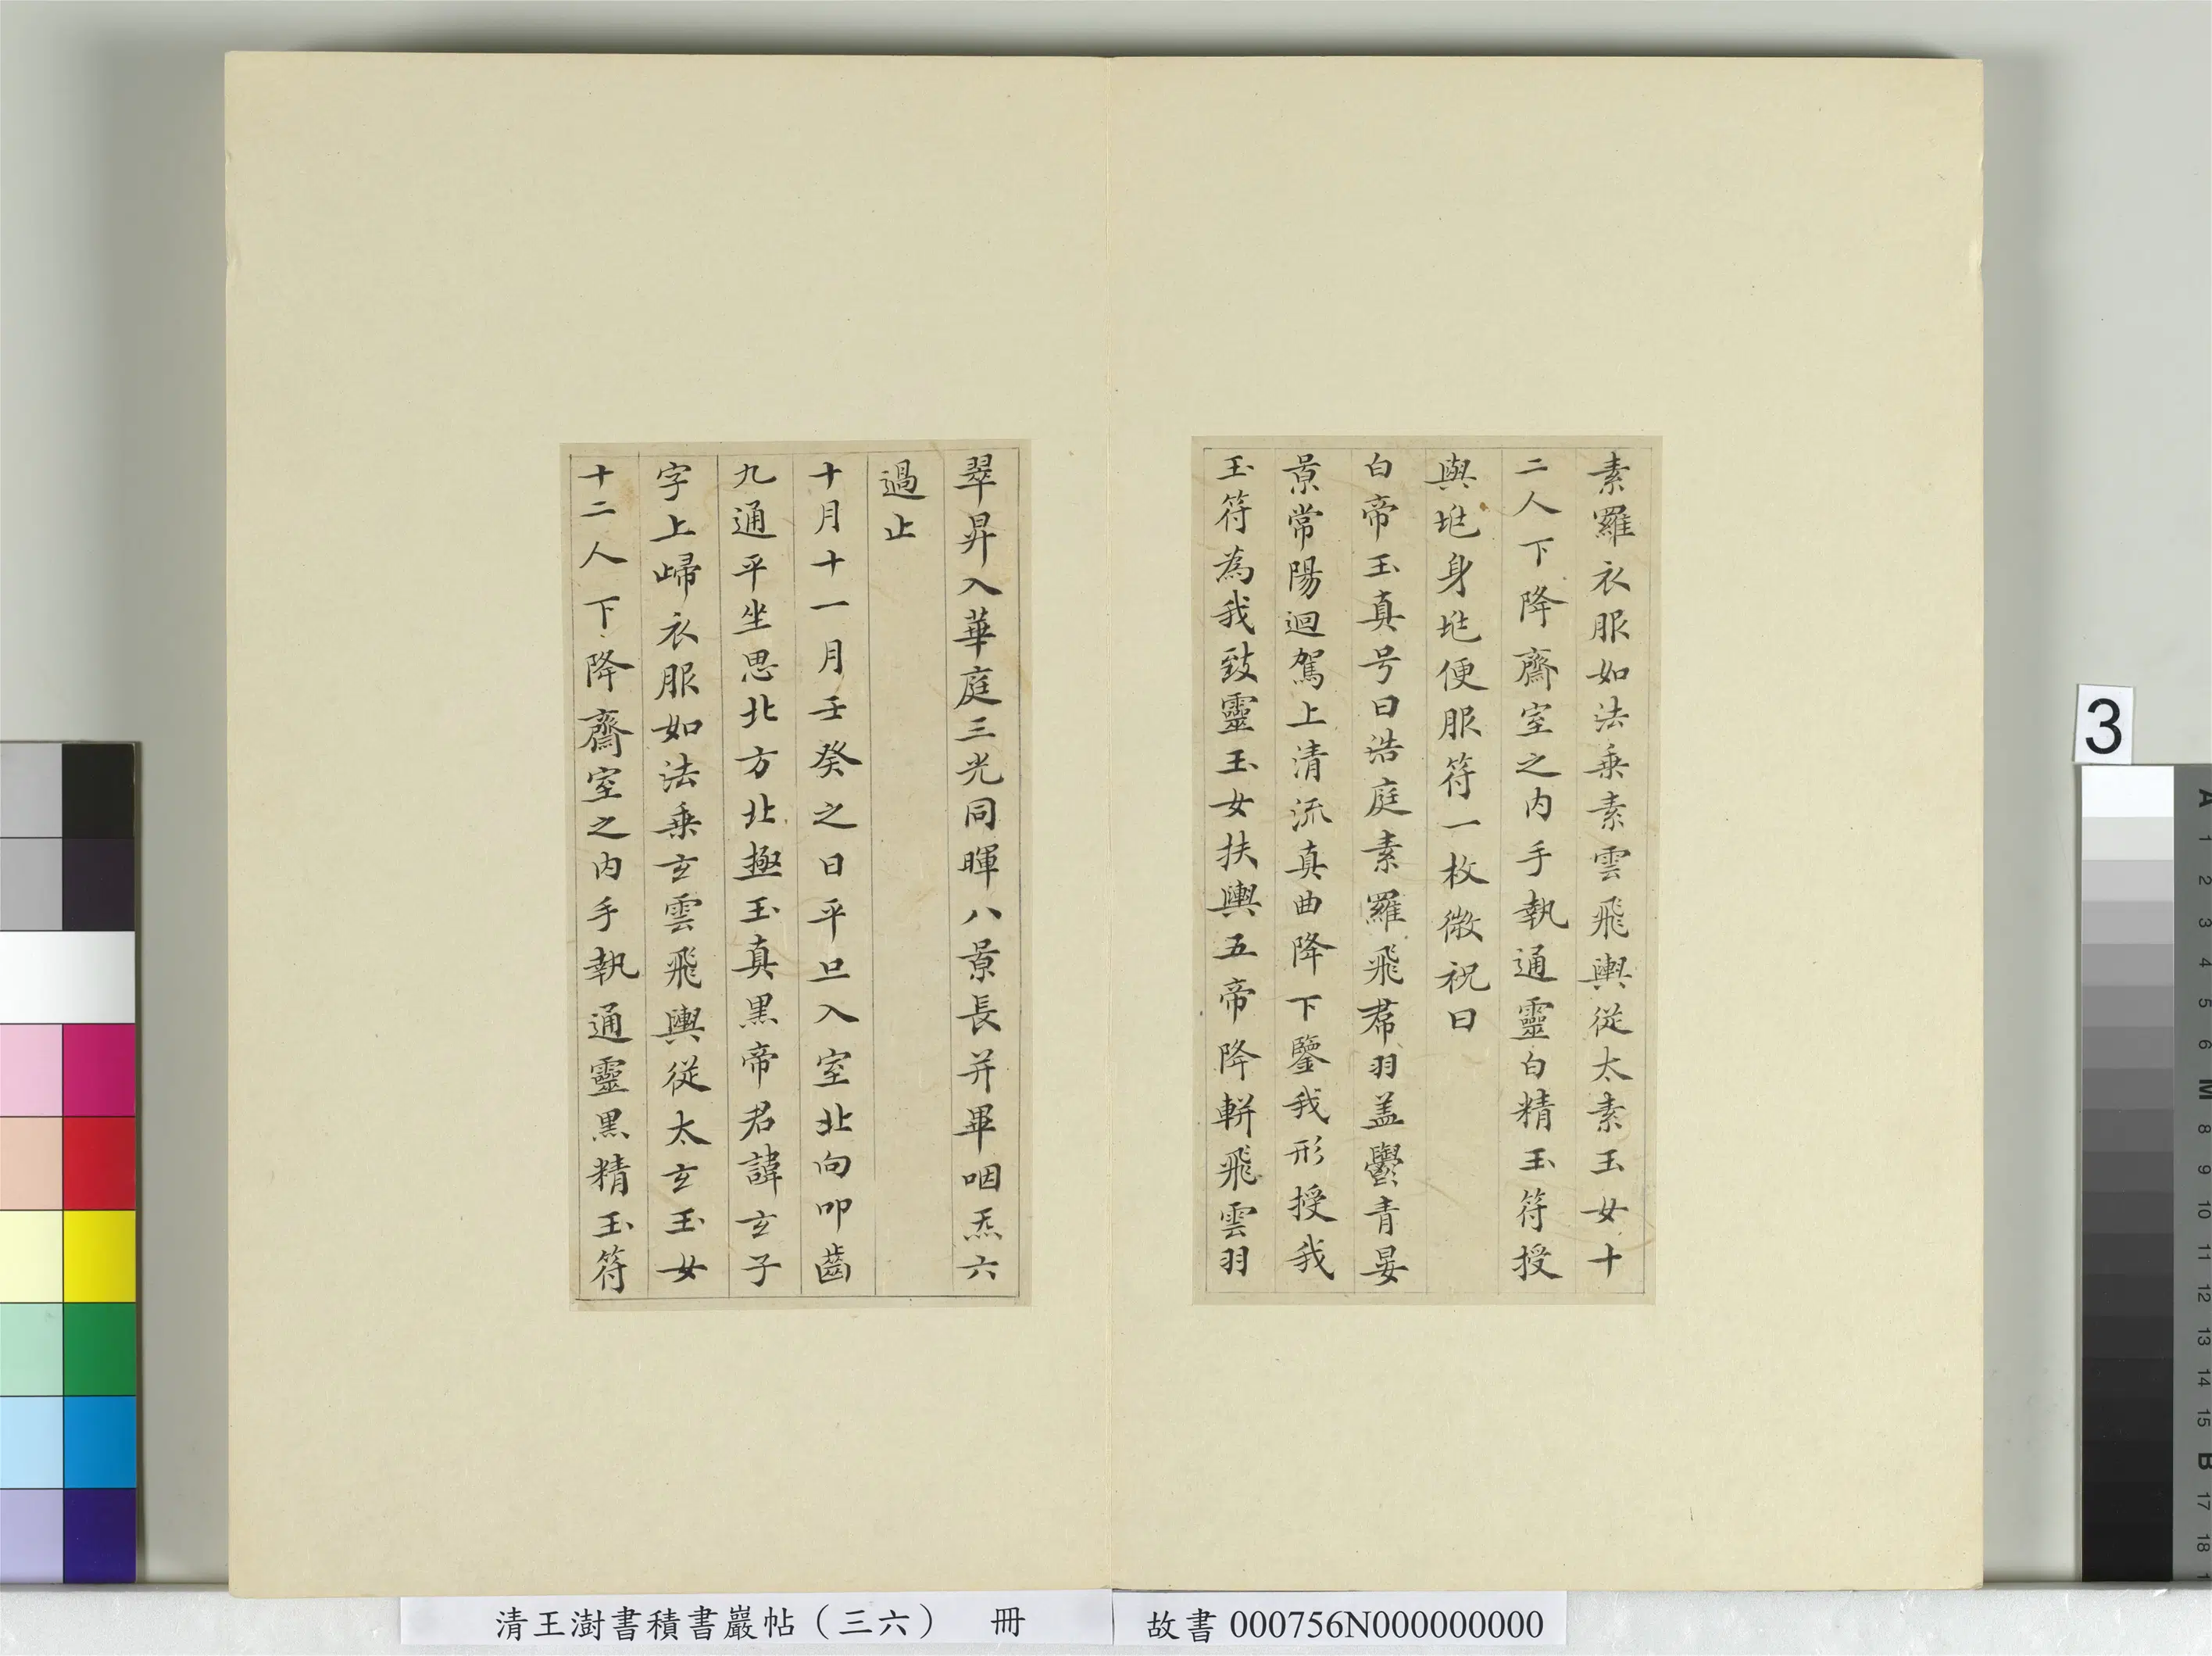 素羅衣服如法乗素雲飛輿從太素玉女十
二人下降齋室之内手執通靈白精玉符授
與兆身兆便服符一枚微祝曰
白帝玉真号曰浩庭素羅飛帬羽盖鬱青晏
景常陽迴駕上清流真曲降下鑒我形授我
玉符為我致靈玉女扶輿五帝降軿飛雲羽
翠昇入華庭三光同暉八景長并畢咽炁六
過止
十月十一月壬癸之日平旦入室北向叩齒
九通平坐思北方北極玉真黒帝君諱玄子
字上歸衣服如法乗玄雲飛輿從太玄玉女
十二人下降齋室之内手執通靈黒精玉符
清王澍書積書巖帖（三六） 冊
故書 000756N000000000
3
A
1
2
3
4
5
6
M
8
9
10
11
12
13
14
15
B
17
18